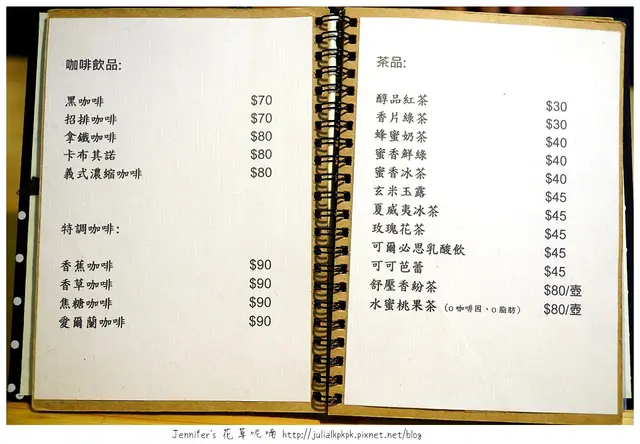 咖啡飲品:
黑咖啡 $70
招排咖啡 $70
拿鐵咖啡 $80
卡布其諾 $80
義式濃縮咖啡 $80
特調咖啡:
香蕉咖啡 $90
香草咖啡 $90
焦糖咖啡 $90
愛爾蘭咖啡 $90
茶品:
醇品紅茶 $30
香片綠茶 $30
蜂蜜奶茶 $40
蜜香鮮綠 $40
蜜香冰茶 $40
玄米玉露 $45
夏威夷冰茶 $45
玫瑰花茶 $45
可爾必思乳酸飲 $45
可可芭蕾 $45
舒壓香紛茶 $80/壺
水蜜桃果茶 (o咖啡因、o脂肪) $80/壺
Jennifer's 花草呢喃 http://julialkpkpk.pixnet.net/blog